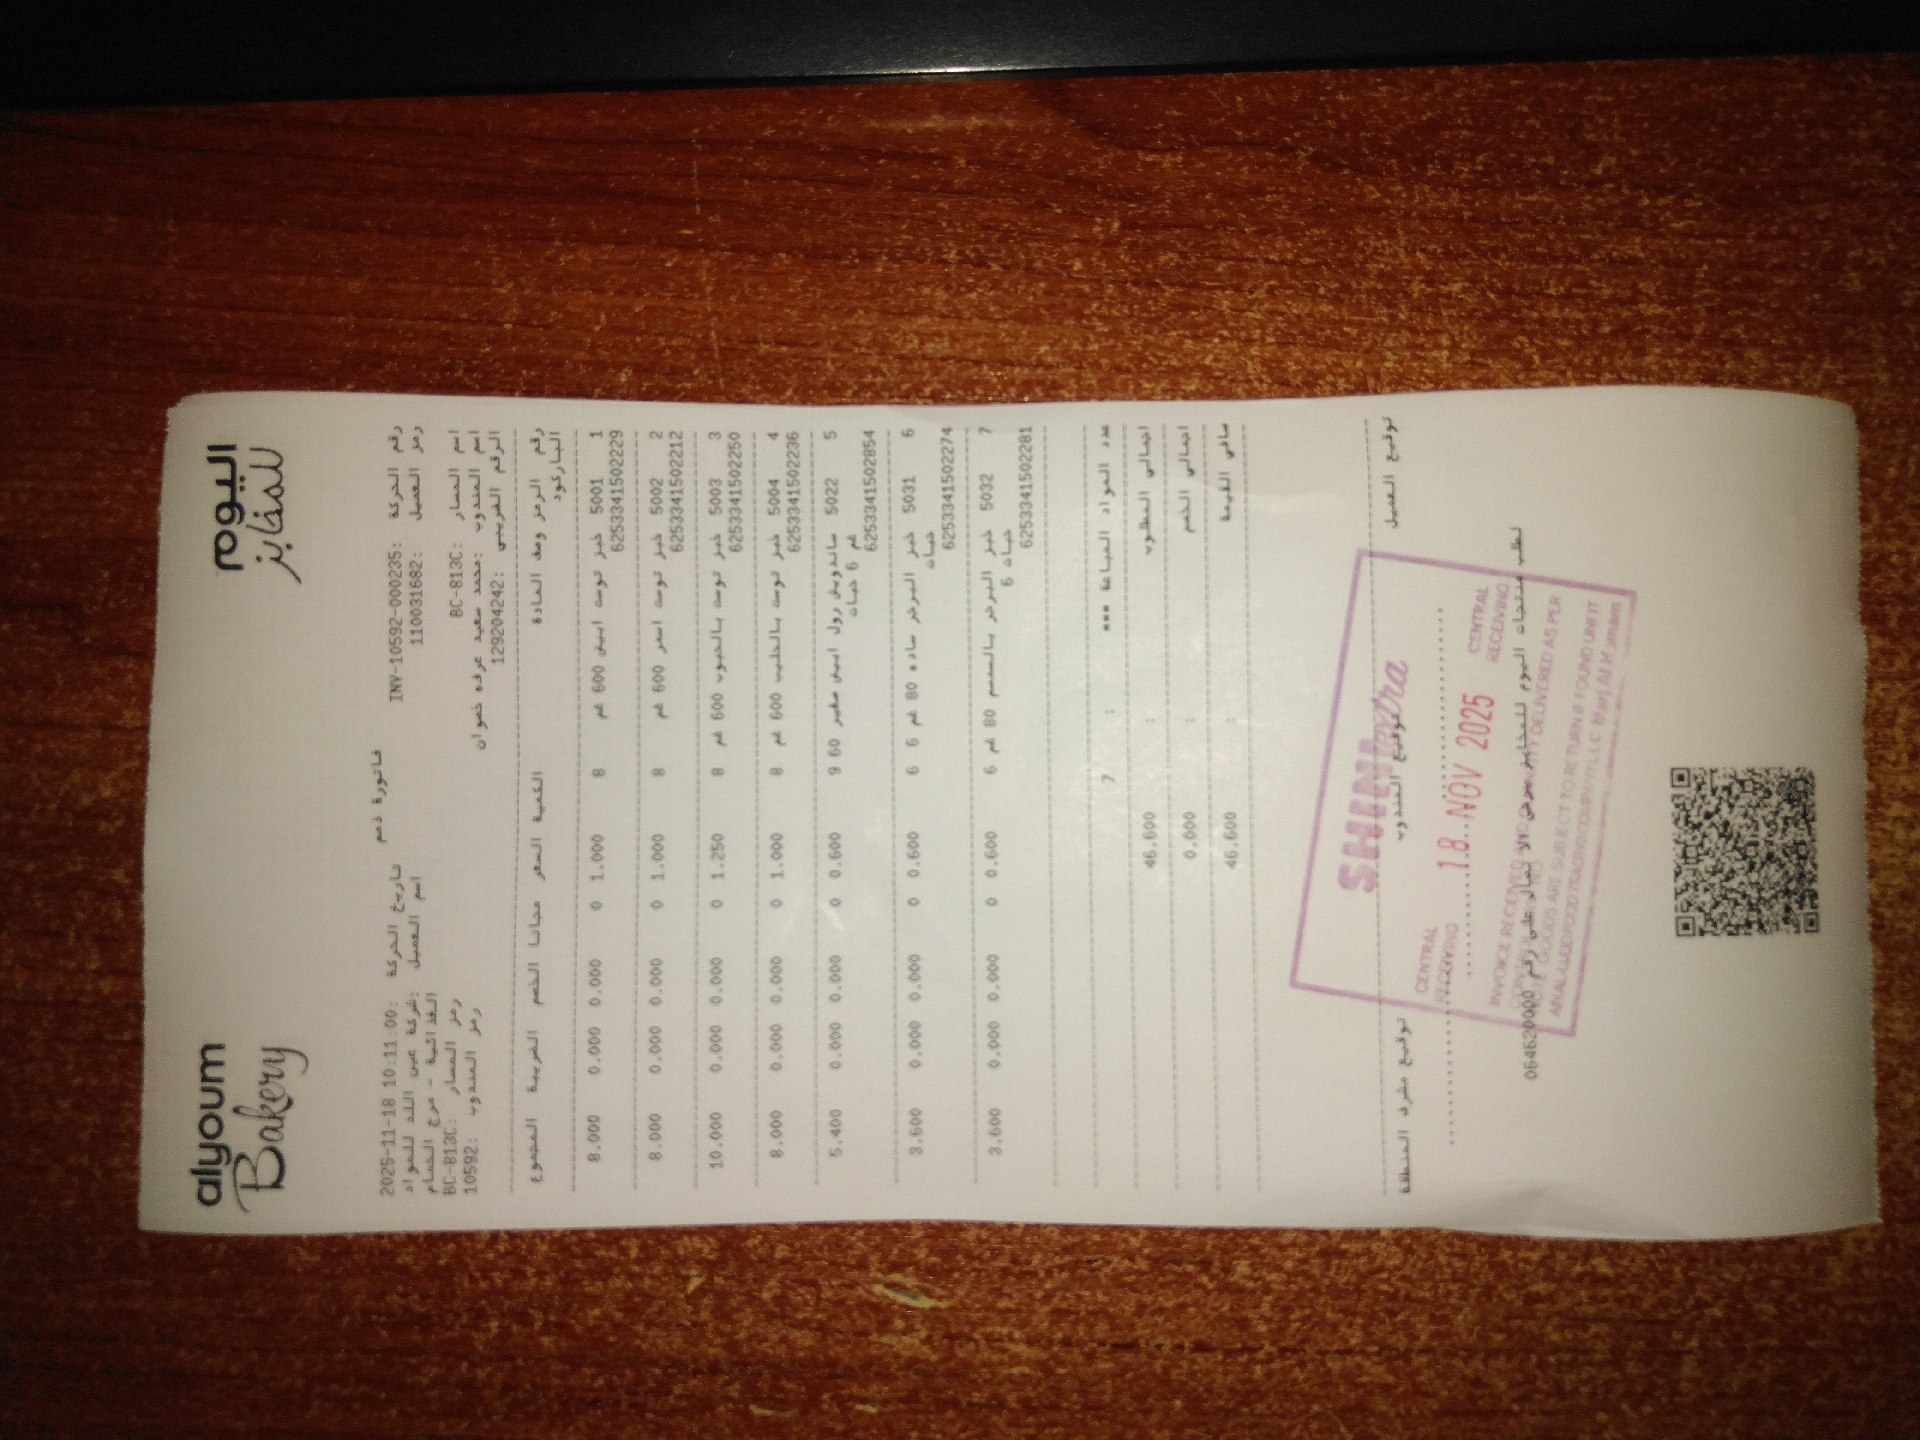 alyoum اليوم
Bakery للمخابز
فاتورة ذمم
رقم الحركة :INV-10592-000235 تاريخ الحركة :2025-11-18 10:11:00
رمز العميل :110031682 اسم العميل :شركة عين اللد للمواد
الغذائية - مرج الحمام
اسم المسار :BC-813C رمز المسار :BC-813C
اسم المندوب :محمد سعيد عرفه خضوان رمز المندوب :10592
الرقم الضريبي :129204242
رقم الرمز وصف المادة الكمية السعر مجانا الخصم الضريبة المجموع
الباركود
1 5001 خبز توست ابيض 600 غم 8 1.000 0 0.000 0.000 8.000
6253341502229
2 5002 خبز توست اسمر 600 غم 8 1.000 0 0.000 0.000 8.000
6253341502212
3 5003 خبز توست بالحبوب 600 غم 8 1.250 0 0.000 0.000 10.000
6253341502250
4 5004 خبز توست بالحليب 600 غم 8 1.000 0 0.000 0.000 8.000
6253341502236
5 5022 ساندويش رول ابيض صغير 60 9 0.600 0 0.000 0.000 5.400
غم 6 حبات
6253341502854
6 5031 خبز البرجر ساده 80 غم 6 6 0.600 0 0.000 0.000 3.600
حبات
6253341502274
7 5032 خبز البرجر بالسمسم 80 غم 6 0.600 0 0.000 0.000 3.600
6 حبات
6253341502281
عدد المواد المباعة *** : 7
اجمالي المطلوب : 46.600
اجمالي الخصم : 0.000
صافي القيمة : 46.600
توقيع العميل توقيع المندوب توقيع مشرف المنطقة
CENTRAL RECEIVING 18 NOV 2025 CENTRAL RECEIVING
INVOICE RECEIVED DELIVERED AS PER
GOODS ARE SUBJECT TO RETURN IF FOUND UNFIT
لطلب منتجات اليوم للمخابز على رقم 064620000